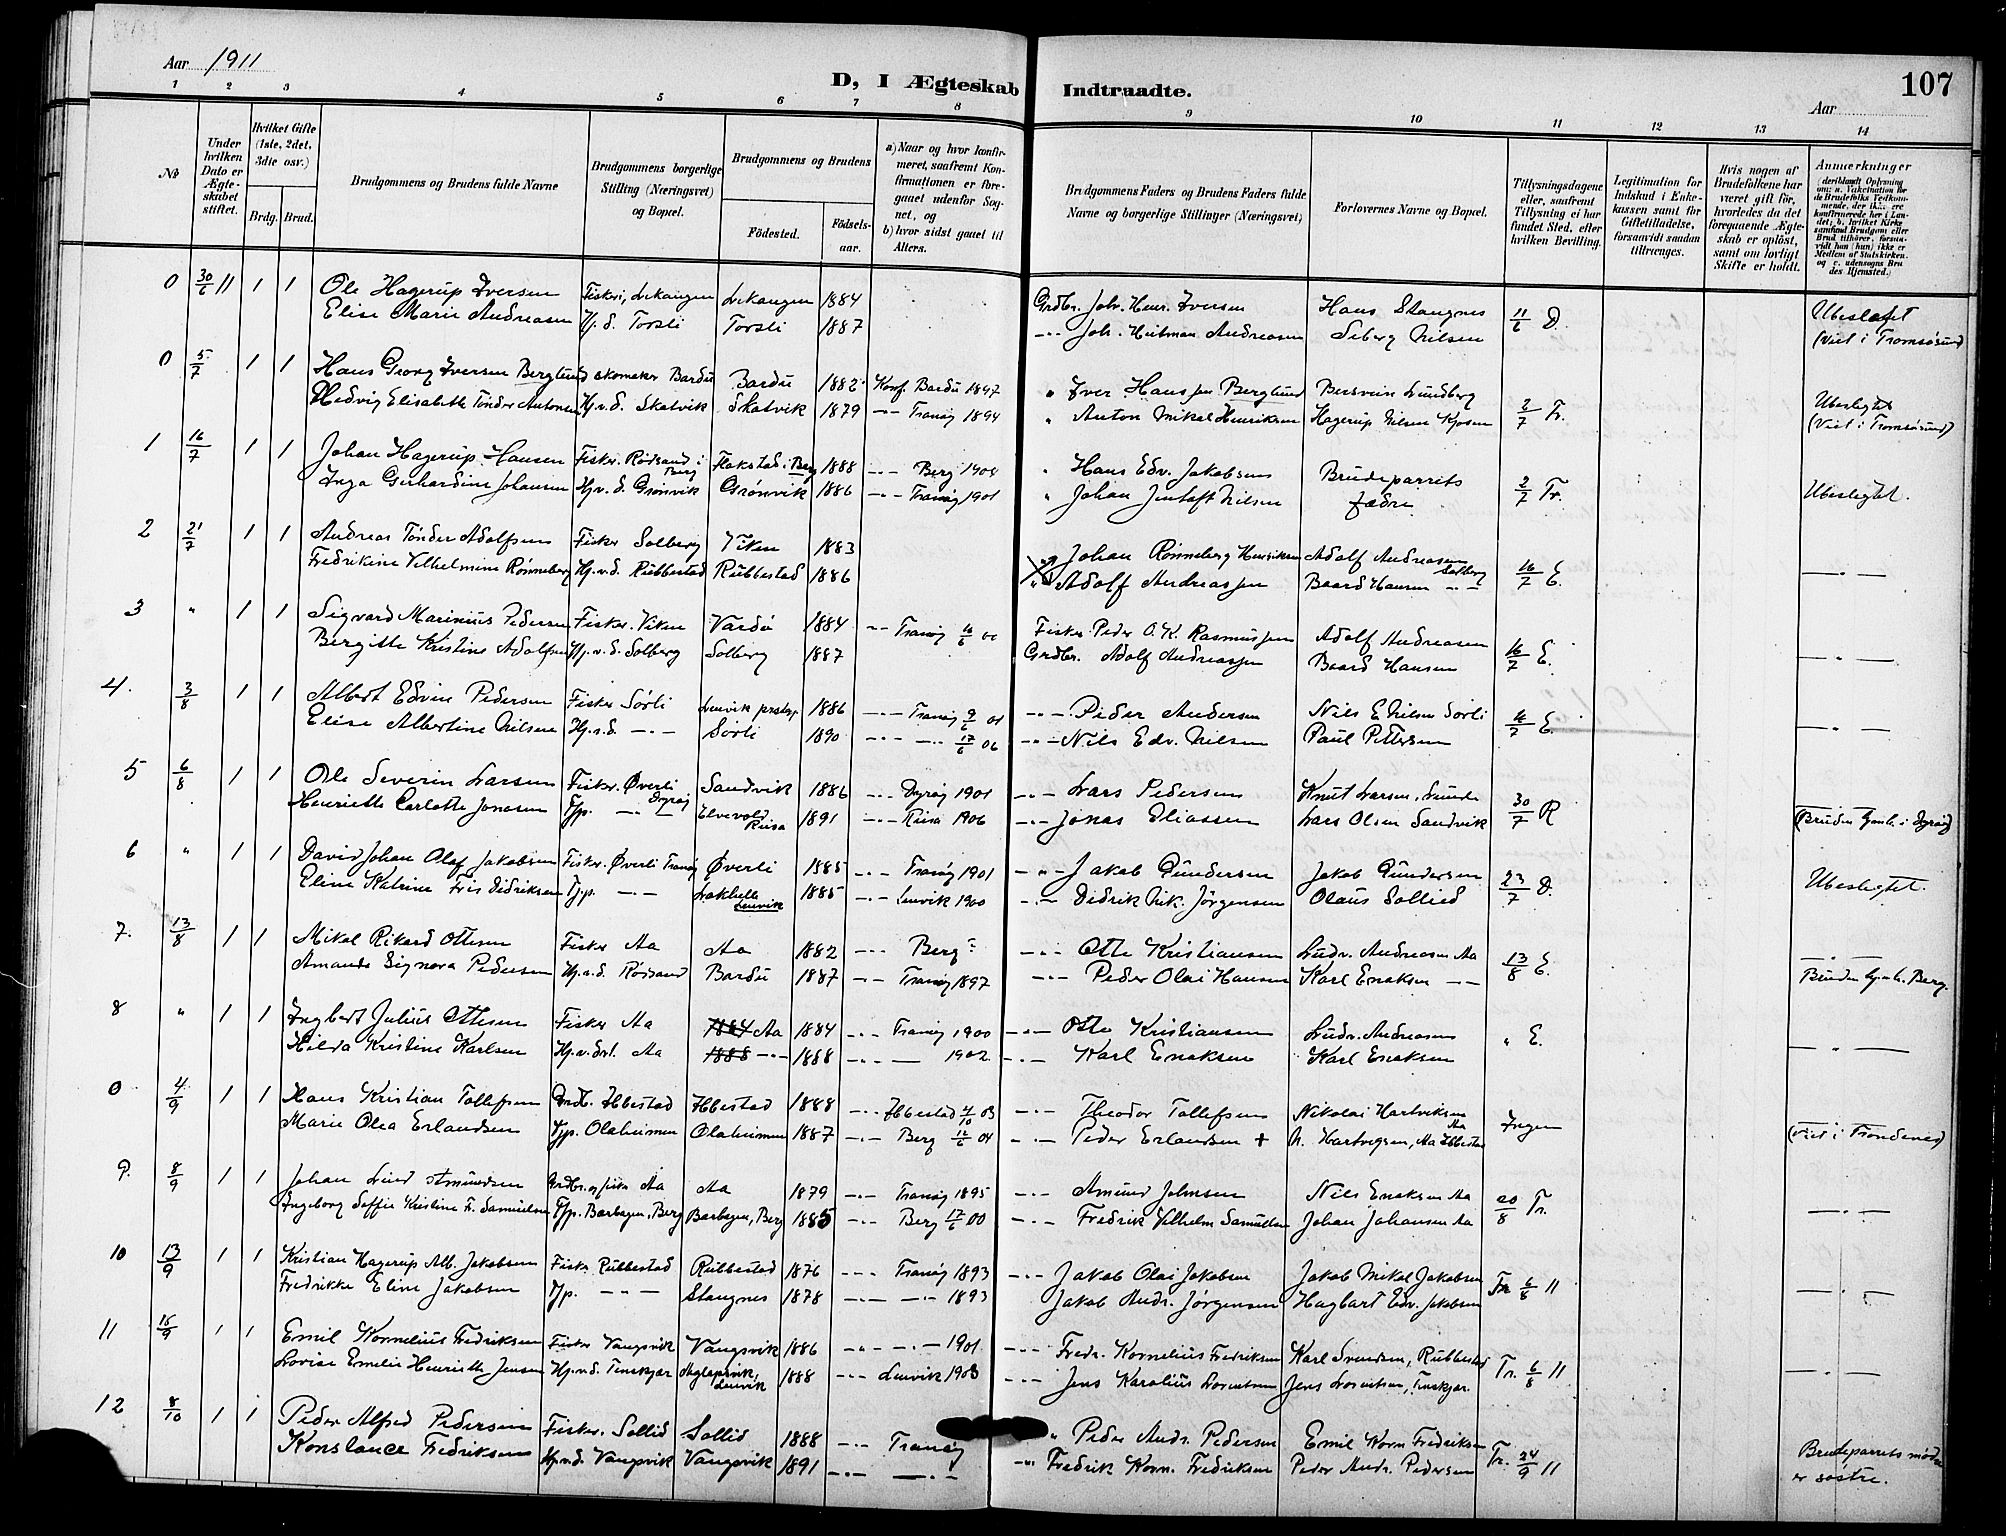 Aar 1911
D, I Ægteskab Indtraadte.
107
Aar
1 2 3 4 5 6 7 8 9 10 11 12 13 14
No
Under hvilken Dato er Ægteskabet stiftet.
Hvilket Gifte (1ste, 2det, 3die osv.)
Brdg. Brud.
Brudgommens og Brudens fulde Navne
Brudgommens borgerlige Stilling (Næringsvei) og Bopæl.
Brudgommens og Brudens
Fødested.
Fødselsaar.
a) Naar og hvor konfirmeret, saafremt Konfirmationen er foregaaet udenfor Sognet, og
b) hvor sidst gaaet til Alters.
Brudgommens Faders og Brudens Faders fulde Navne og borgerlige Stillinger (Næringsvei)
Forlovernes Navne og Bopæl.
Tillysningsdagene eller, saafremt Tillysning ei har fundet Sted, efter hvilken Bevilling.
Legitimation for Indskud i Enkekassen samt for Giftetilladelse, forsaavidt saadan tiltrænges.
Hvis nogen af Brudefolkene har været gift før, hvorledes da det foregaaende Ægteskab er opløst, samt om lovligt Skifte er holdt.
Anmærkninger
0 30/6 11 1 1 Ole Hagerup Iversen Fisker, Lekangen Lekangen 1884 Grdbr. Joh. Henr. Iversen Hans Stangnes 11/6 D. Ubeslægtet
Elise Marie Andreasen Hj. d. Torsli Torsli 1887 -"- Joh. Heitman Andreasen Seberg Nilsen (Viet i Tromsøsund)
0 5/7 1 1 Hans Georg Iversen Berglund skomaker Bardu Bardu 1882 Konf. Bardu 1897 " Iver Hanssen Berglund Bersvein Lundberg Ubeslegtet
Hedvig Elisabeth Tønder Antonsen Hj.v.d. Skatvik Skatvik 1879 -"- Tranøy 1894 " Anton Mikal Henriksen Hagerup Nilsen Kjosen 2/7 Tr. (Viet i Tromsøsund)
1 16/7 1 1 Johan Hagerup Hansen Fisker. Rødsand i Berg Flakstad i Berg 1888 -"- Berg 1904 " Hans Edv. Jakobsen Brudeparrets
Inga Gerhardine Johansen Hj.v.d. Grønvik Grønvik 1886 -"- Tranøy 1901 " Johan Jentoft Nilsen fædre 2/7 Tr. Ubeslegtet.
2 21/7 1 1 Andreas Tønder Adolfsen Fisker Solberg Viken 1883 Johan Rønneberg Henriksen Adolf Andreasen Solberg
Fredrikine Vilhelmine Rønneberg Hj.v.d. Rubbestad Rubbestad 1886 " Adolf Andreassen Baard Hansen -"- 16/7 E. -"-
3 " 1 1 Sigvard Marinius Pedersen Fisker. Viken Vardø 1884 -"- Tranøy 16/6 00 Fisker Peder O. K. Rasmussen Adolf Andreasen
Bergitte Kristine Adolfsen Hj.v.d. Solberg Solberg 1887 Grdbr. Adolf Andreassen Baard Hansen 16/7 E. -"-
4. 3/8 1 1 Albert Edvin Pedersen Fisker Sørli Lenvik prstgj. 1886 -"- Tranøy 9/6 01 -"- Peder Andersen Nils E. Nilsen Sørli
Elise Albertine Nilsen Hj.v.d. -"- Sørli 1890 -"- -"- 17/6 06 -"- Nils Edv. Nilsen Paul Pettersen 16/7 E. -"-
5 6/8 1 1 Ole Severin Larsen Fisker. Øverli Sandvik 1886 -"- Dyrøy 1901 -"- Lars Pedersen Knut Larsen, Lunde
Henriette Carlotte Jonasen Tjp. -"- Dyrøy Elvevold Reisa 1891 -"- Reisa 1906 -"- Jonas Eliassen Lars Olsen Sandvik 30/7 R -"- (Bruden hjemh. i Dyrøy)
6 " 1 1 David Johan Olaf Jakobsen Fisker. Øverli Tranøy Øverli 1885 -"- Tranøy 1901 -"- Jakob Gundersen Jakob Gundersen
Eline Katrine Fris Didriksen Tjp. -"- Lakhelle Lenvik 1885 -"- Lenvik 1900 -"- Didrik Nik. Jørgensen Olaus Sollied 23/7 D. Ubeslegtet.
7. 13/8 1 1 Mikal Rikard Ottesen Fisker Aa Aa 1882 -"- Berg -"- Otte Kristiansen Ludv. Andreasen Aa
Amanda Signora Pedersen Hj.v.d. Rødsand Bardu 1887 -"- Tranøy 1897 -"- Peder Olai Hansen Karl Enoksen -"- 13/8 E. -"- Bruden hjemh. Berg.
8 " 1 1 Ingbert Julius Ottesen Fisker Aa 1884 Aa 1884 -"- Tranøy 1900 -"- Otto Kristiansen Ludv. Andreasen " E.
Hilda Kristine Karlsen Hj.v.drt. Aa 1888 -"- 1888 -"- — 1902 -"- Karl Enoksen Karl Enoksen -"-
0 4/9 1 1 Hans Kristian Tollefsen Grdb. Ibbestad Ibbestad 1888 -"- Ibbestad 4/10 03 -"- Theodor Tollefsen Nikolai Hartviksen Aa Ingen
Marie Olea Erlandsen Tjp. Olaheimen Olaheimen 1887 -"- Berg 12/6 04 -"- Peder Erlandsen + N. Hartvigsen, Aa Ibbestad (viet i Trondenes)
9. 8/9 1 1 Johan Lind Amundsen Grdbr. og fisker Aa Aa 1879 -"- Tranøy 1895 -"- Amund Johnsen Nils Enoksen Aa
Ingeborg Soffie Kristine F. Samuelsen Tjp. Barbogen, Berg Barbogen, Berg 1885 -"- Berg 17/6 00 -"- Fredrik Vilhelm Samuelsen Johan Johansen Aa 20/8 Tr. -"-
10 13/9 1 1 Kristian Hagerup Alb. Jakobsen Fisker Rubbestad Rubbestad 1876 -"- Tranøy 1893 -"- Jakob Olai Jakobsen Jakob Mikal Jakobsen
Fredrikke Eline Jakobsen Tjp. -"- Stangnes 1878 -"- -"- 1893 Jakob Andr. Jørgensen Hagbart Edv. Jakobsen Tr 6/8 11 -"-
11 15/9 1 1 Emil Kornelius Fredriksen Fisker Vangsvik Vangsvik 1886 -"- -"- 1901 -"- Fredr. Kornelius Fredriksen Karl Svendsen, Rubbestad
Lovise Emelie Henriette Jensen Hj.v.d. Tenskjær Lenvik 1888 -"- Lenvik 1903 -"- Jens Karolius Lorentsen Jens Lorentsen, Tenskjær. Tr. 6/8 11 -"-
12 8/10 1 1 Peder Alfred Pedersen Fisker. Sollid Sollid 1888 -"- Tranøy " Peder Andr. Pedersen Emil Korn Fredriksen
Konstance Fredriksen Hj.v.d. Vangsvik Vangsvik 1891 -"- -"- -"- Fredrik Korn. Fredriksen Peder Andr. Pedersen Tr. 24/9 11 Brudeparrets mødre er søstre.